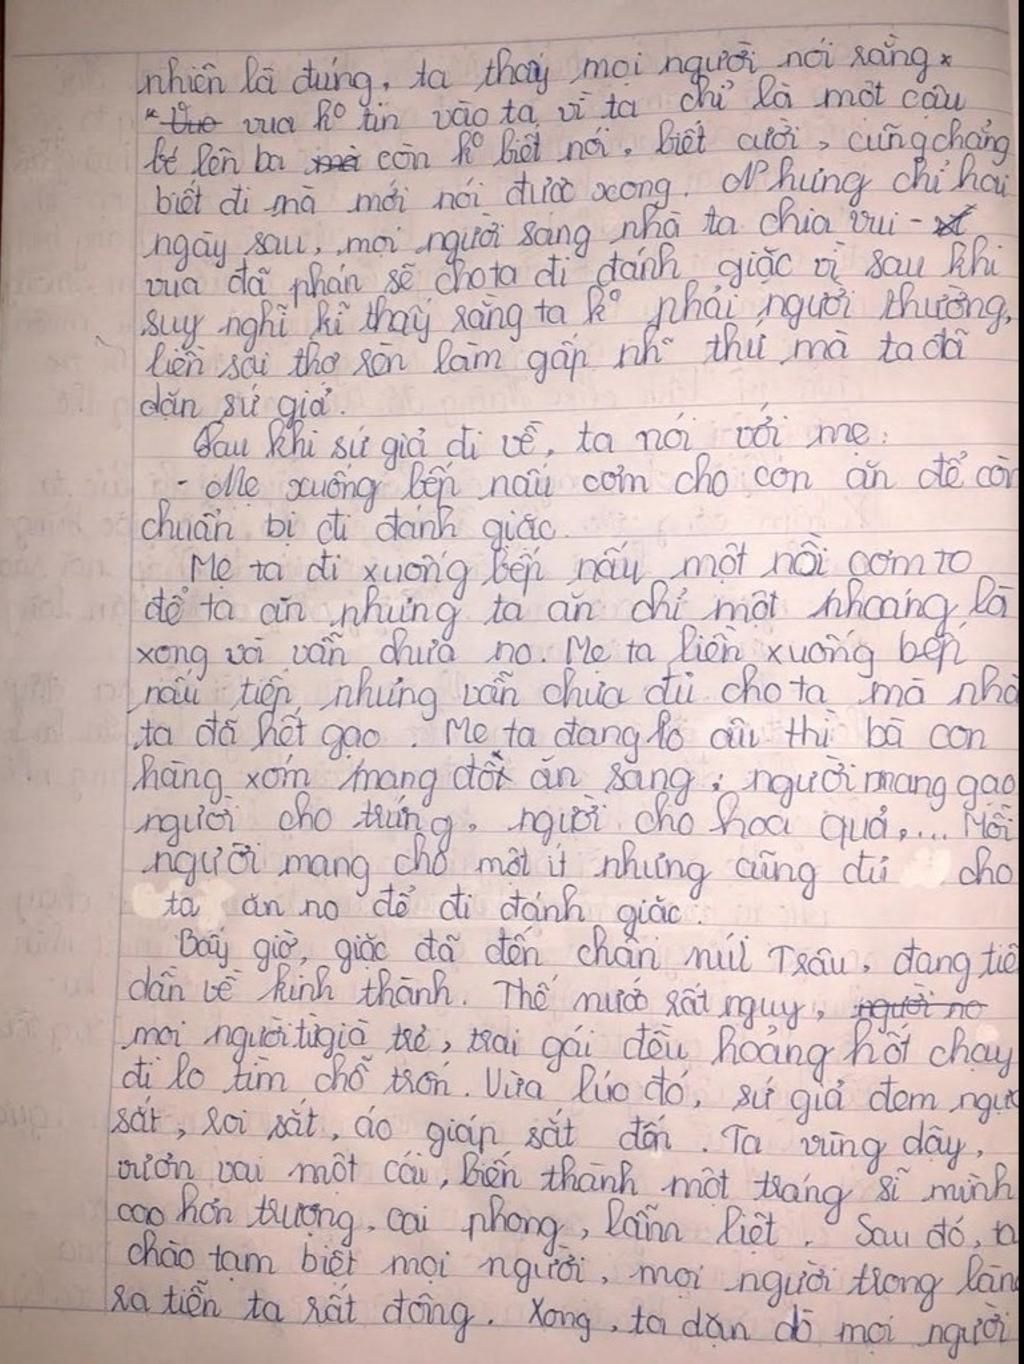 nhiên là đúng, ta thấy mọi người nói rằng
vua ko tin vào ta vì ta chỉ là một cậu
bé lên ba còn ko biết nói, biết cười, cũng chẳng
biết đi mà mới nói được xong. Nhưng chỉ hai
ngày sau, mọi người sang nhà ta chia vui -
vua đã phán sẽ cho ta đi đánh giặc vì sau khi
suy nghĩ kĩ thấy rằng ta ko phải người thường,
liền sai thợ rèn làm gấp nh~ thứ mà ta đã
dặn sứ giả.
Sau khi sứ giả đi về, ta nói với mẹ:
- Mẹ xuống bếp nấu cơm cho con ăn để còn
chuẩn bị đi đánh giặc.
Mẹ ta đi xuống bếp nấu một nồi cơm to
để ta ăn nhưng ta ăn chỉ một nhoáng là
xong và vẫn chưa no. Mẹ ta liền xuống bếp
nấu tiếp, nhưng vẫn chưa đủ cho ta mà nhà
ta đã hết gạo. Mẹ ta đang lo âu thì bà con
hàng xóm mang đồ ăn sang; người mang gạo
người cho trứng, người cho hoa quả,... Mỗi
người mang cho một ít nhưng cũng đủ cho
ta ăn no để đi đánh giặc.
Bấy giờ, giặc đã đến chân núi Trâu, đang tiế
dần về kinh thành. Thế nước rất nguy, người no
mọi người từ già trẻ, trai gái đều hoảng hốt chạy
đi lo tìm chỗ trốn. Vừa lúc đó, sứ giả đem ngự
sắt, roi sắt, áo giáp sắt đến. Ta vùng dậy,
vươn vai một cái, biến thành một tráng sĩ mình
cao hơn trượng, oai phong, lẫm liệt. Sau đó, ta
chào tạm biệt mọi người, mọi người trong làng
ra tiễn ta rất đông. Xong, ta dặn dò mọi người